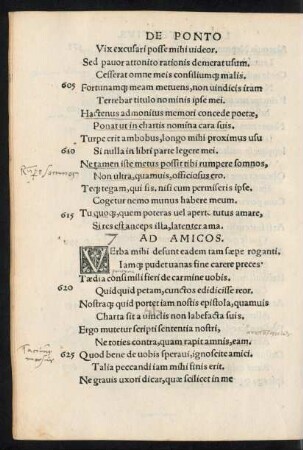 DE PONTO
Vix excusari posse mihi uideor.
Sed pauor attonito rationis demerat usum.
Cesserat omne meis consiliumq; malis.
605 Fortunamq; meam metuens, non uindicis iram
Terrebar titulo nominis ipse mei.
Hactenus admonitus memori concede poetæ,
Ponat ut in chartis nomina cara suis.
Turpe erit ambobus, longo mihi proximus usu
610 Si nulla in libri parte legere mei.
Ne tamen iste metus possit tibi rumpere somnos,
Non ultra, quamuis, officiosus ero.
Teq; tegam, qui sis, nisi cum permiseris ipse.
Cogetur nemo munus habere meum.
615 Tu quoq;, quem poteras uel apert. tutus amare,
Si res est anceps illa, latenter ama.
7 AD AMICOS.
VErba mihi desunt eadem tam sæpe roganti.
Iamq; pudet uanas fine carere preces.
Tædia consimili fieri de carmine uobis,
620 Quidquid petam, cunctos edidicisse reor.
Nostraq; quid portet iam nostis epistola, quamuis
Charta sit a uinclis non labefacta suis.
Ergo mutetur scripti sententia nostri,
Ne toties contra, quam rapit amnis, eam.
625 Quod bene de uobis speraui, ignoscite amici.
Talia peccandi iam mihi finis erit.
Ne grauis uxori dicar, quæ scilicet in me